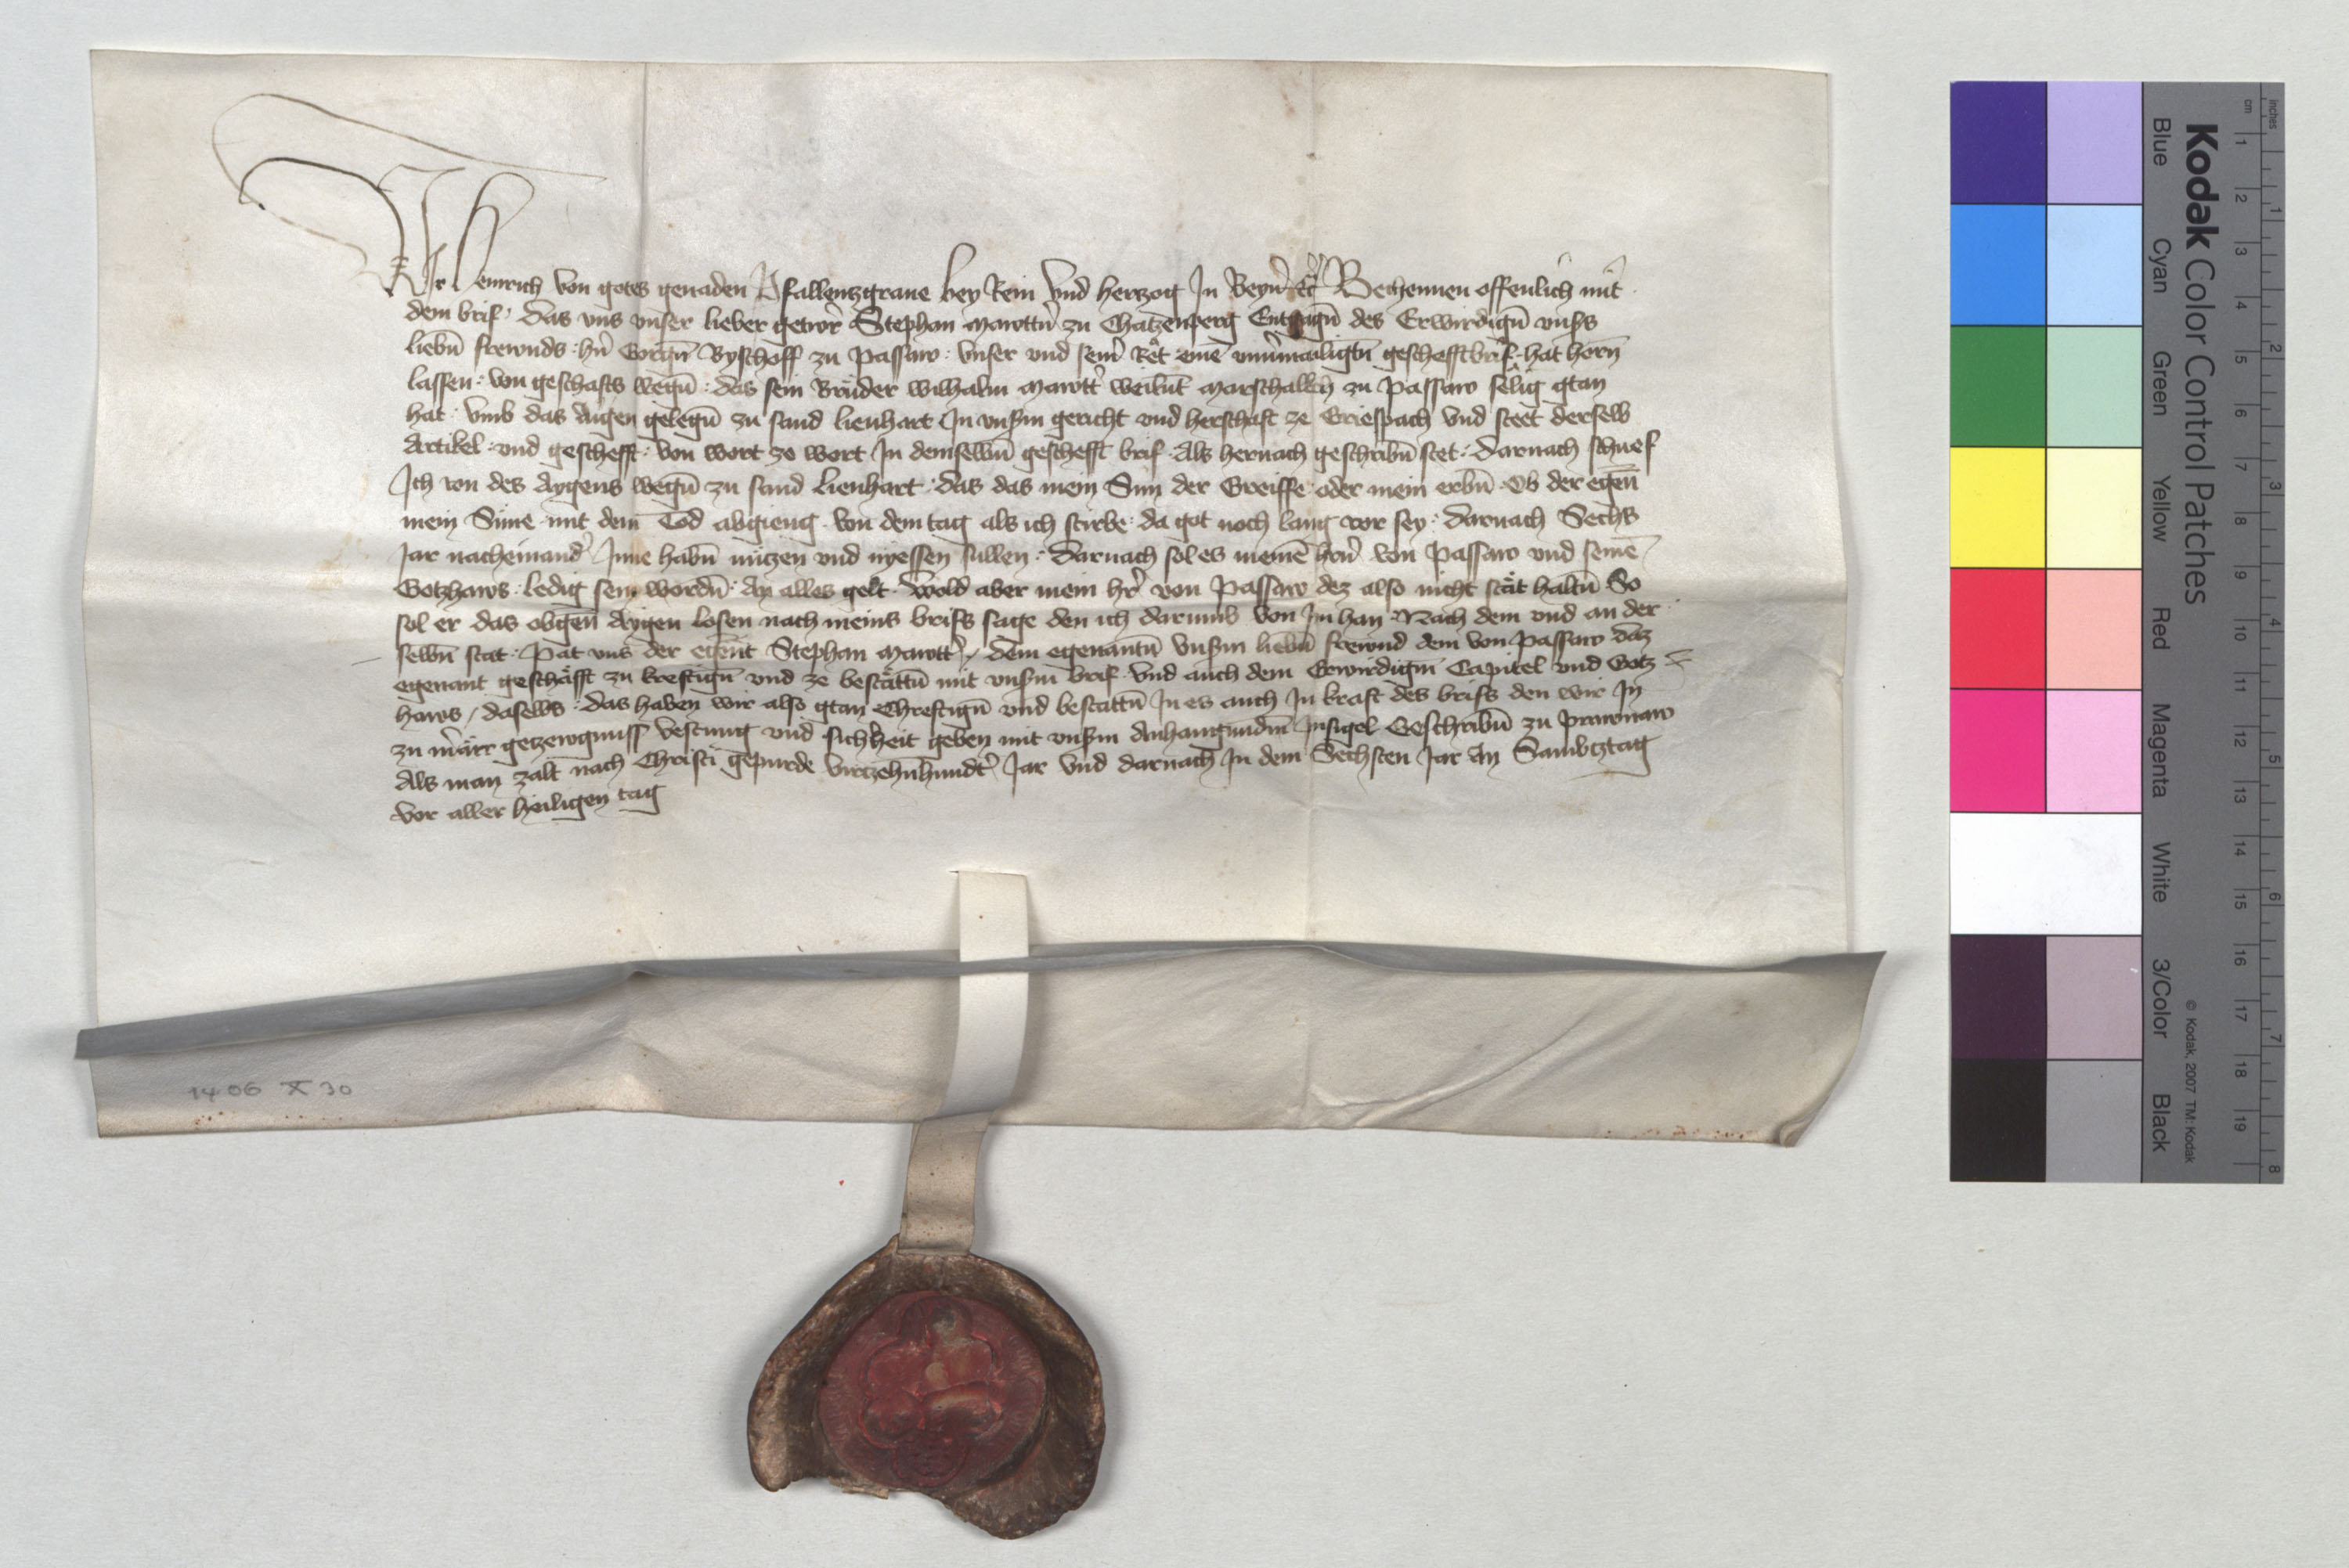 Wir Heinrich von gotes genaden Pfallenczgraue bey Rein vnd herczog In Beyrn̄ etc̄ Bechennen offenlich mit
dem brif · das vns vnser lieber getrŏr Stephan marottn̄ zu Chatzenperg Entgagn̄ des Erwirdign̄ vnsers
liebn̄ frewnds · hn̄ Gorgn̄ Byschoff zu Passaw · vnser vnd sein̄ Rĕt ainē geschefftbrif · hat hoern̄
lassen · von geschefts wegn̄ · das sein Brüder wilhalm marott̄ weilnt̄ marschallch zu Passaw sĕlig gtan
hat · vmb das Aigen gelegn̄ zu sand lienhart In vnsm̄ gericht vnd herschaft ze Griespach vnd steet derselb
Artikel · vnd geschefft · von wort ze wort In demselbn̄ geschefft brif · Als hernach geschribn̄ stet · darnach schuef
Ich von des Aygens wegn̄ zu sand Lienhart · das das mein Sun der Greiffe · oder mein erbn̄ · Ob der egen̄
mein Sune · mit dem Tod abgieng · von dem tag als ich stirbe · da got noch lang vor sey · darnach Sechs
Jar nacheinand̄ Inne habn̄ nuczen vnd nyessen sullen · darnach sol es meinē hrn̄ von Passaw vnd seinē
Gotzhaws · ledig sein wordn̄ · An alles gelt · wold aber mein hr̄ von Passaw dez also nicht stät haltn̄ So
sol er das obgen̄ Aygen losen nach meins brifs sage den ich darumb von Im han Nach dem vnd an der
selbn̄ stat · Pat vns der egen̄t Stephan marott̄ / dem egenantn̄ vnsm̄ liebn̄ frewnd dem von Passaw daz
egenant geschäfft zu krefftign̄ vnd ze bestättn̄ mit vnsm̄ brif · vnd auch dem Erwirdign̄ Capitel vnd Gotz
haws / daselbs · das haben wir also gtan Chrefftign̄ vnd bestattn̄ In es auch In kraft des brifs den wir In
zu m̄ärr getzewgnuss vestung vnd sichh̄eit geben mit vnsm̄ Anhangundm̄ Insigel Geschribn̄ zu Prawnaw
Als man zalt nach Christi gepurde virtzehnhundt̄ Jar vnd darnach In dem Sechsten Jar An Sambtztag
vor aller heiligen tag
1406 X 30
Kodak Color Control Patches
Blue Cyan Green Yellow Red Magenta White 3/Color Black
© Kodak, 2007 TM: Kodak
cm 1 2 3 4 5 6 7 8 9 10 11 12 13 14 15 16 17 18 19
inches 1 2 3 4 5 6 7 8